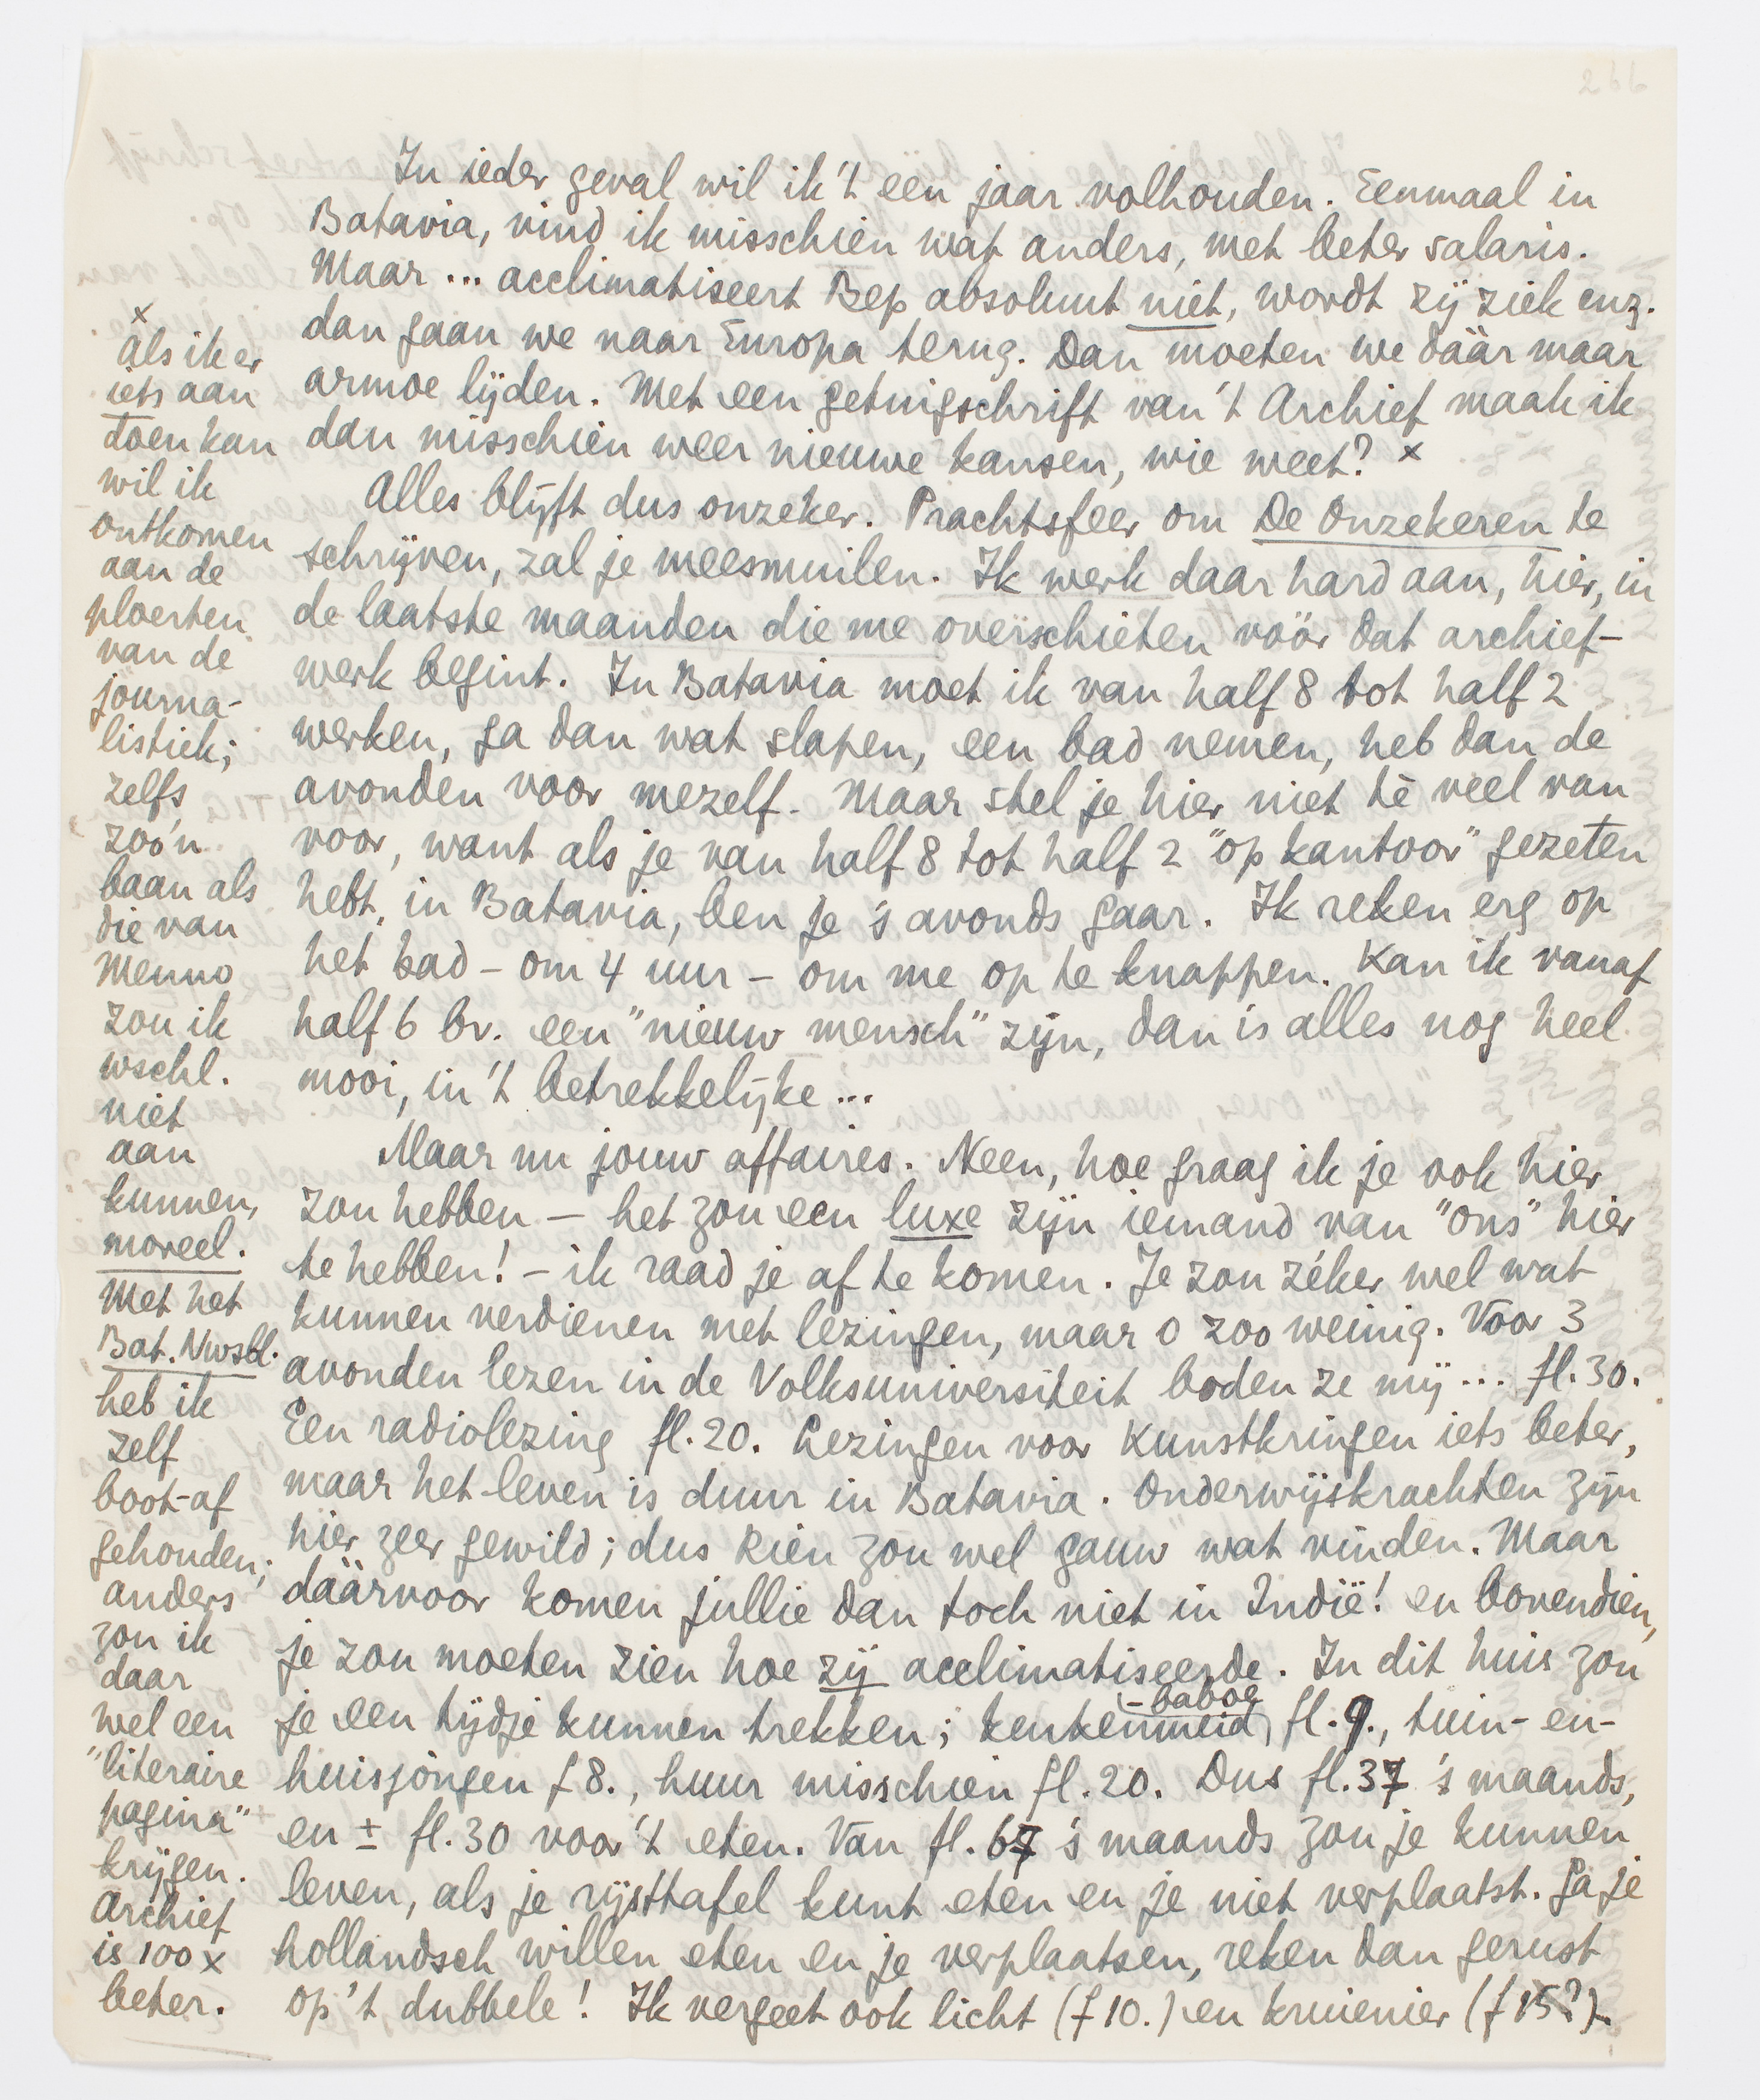 In ieder geval wil ik 't een jaar volhouden. Eenmaal in
Batavia, vind ik misschien wat anders, met beter salaris.
Maar ... acclimatiseert Bep absoluut niet, wordt zij ziek enz.
dan gaan we naar Europa terug. Dan moeten we dáár maar
armoe lijden. Met een getuigschrift van 't Archief maak ik
dan misschien weer nieuwe kansen, wie weet? x
Alles blijft dus onzeker. Prachtsfeer om De Onzekeren te
schrijven, zal je meesmuilen. Ik werk daar hard aan, hier, in
de laatste maanden die me overschieten vóór dat archief-
werk begint. In Batavia moet ik van half 8 tot half 2
werken, ga dan wat slapen, een bad nemen, heb dan de
avonden voor mezelf. Maar stel je hier niet tè veel van
voor, want als je van half 8 tot half 2 "op kantoor" gezeten
hebt, in Batavia, ben je 's avonds gaar. Ik reken erg op
het bad – om 4 uur – om me op te knappen. Kan ik vanaf
half 6 bv. een "nieuw mensch" zijn, dan is alles nog heel
mooi, in 't betrekkelijke ...
Maar nu jouw affaires. Neen, hoe graag ik je ook hier
zou hebben – het zou een luxe zijn iemand van "ons" hier
te hebben! – ik raad je af te komen. Je zou zéker wel wat
kunnen verdienen met lezingen, maar o zoo weinig. Voor 3
avonden lezen in de Volksuniversiteit boden ze mij ... fl. 30.
Een radiolezing fl. 20. Lezingen voor Kunstkringen iets beter,
maar het leven is duur in Batavia. Onderwijskrachten zijn
hier zeer gewild; dus Rien zou wel gauw wat vinden. Maar
dáárvoor komen jullie dan toch niet in Indië! en bovendien,
je zou moeten zien hoe zij acclimatiseerde. In dit huis zou
je een tijdje kunnen trekken; keukenmeid (-baboe) fl. 9., tuin- en-
huisjongen f 8., huur misschien fl. 20. Dus fl. 37 's maands,
en ± fl. 30 voor 't eten. Van fl. 67 's maands zou je kunnen
leven, als je rijsttafel kunt eten en je niet verplaatst. Ga je
hollandsch willen eten en je verplaatsen, reken dan gerust
op 't dubbele! Ik vergeet ook licht (f 10.) en kruienier (f 15?).
x
Als ik er
iets aan
doen kan
wil ik
ontkomen
aan de
ploerten
van de
journa-
listiek;
zelfs
zoo'n
baan als
die van
Menno
zou ik
wschl.
niet
aan
kunnen,
moreel.
Met het
Bat. Nwsbl.
heb ik
zelf
boot-af
gehouden;
anders
zou ik
daar
wel een
"literaire
pagina"
krijgen.
Archief
is 100 x
beter.